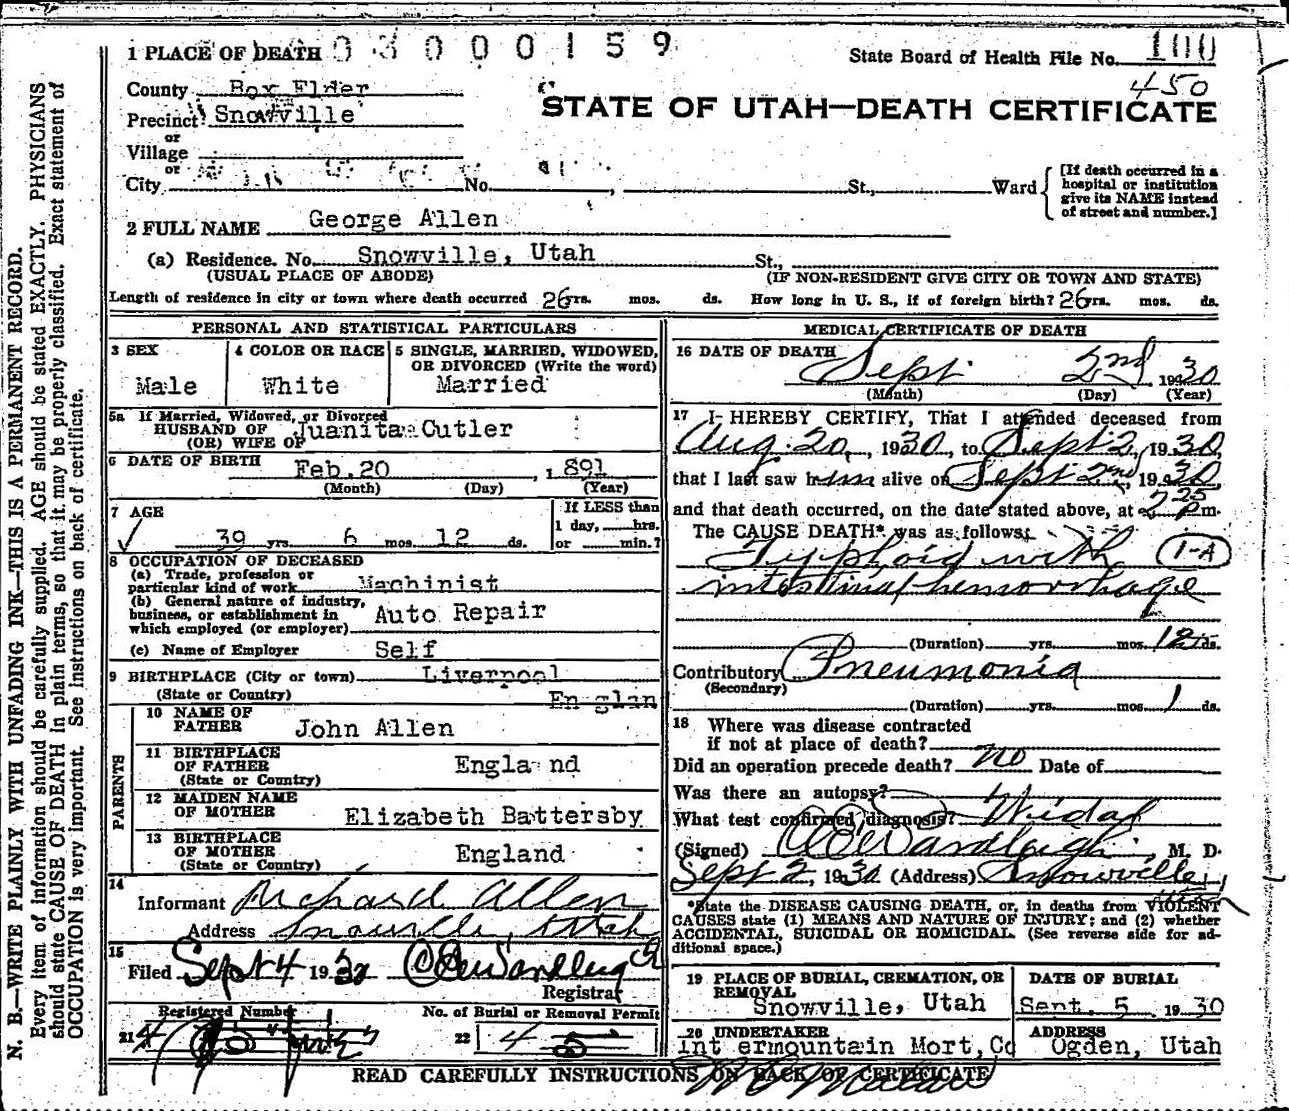 1 PLACE OF DEATH 03000159
State Board of Health File No. 100
450
County Box Elder
STATE OF UTAH—DEATH CERTIFICATE
Precinct Snowville
or
Village
or
City No. , St., Ward
[If death occurred in a
hospital or institution
give its NAME instead
of street and number.]
2 FULL NAME George Allen
(a) Residence. No. Snowville, Utah St.,
(USUAL PLACE OF ABODE) (IF NON-RESIDENT GIVE CITY OR TOWN AND STATE)
Length of residence in city or town where death occurred 26 yrs. mos. ds. How long in U. S., if of foreign birth? 26 yrs. mos. ds.
PERSONAL AND STATISTICAL PARTICULARS
3 SEX
Male
4 COLOR OR RACE
White
5 SINGLE, MARRIED, WIDOWED,
OR DIVORCED (Write the word)
Married
5a If Married, Widowed, or Divorced
HUSBAND OF Juanita Cutler
(OR) WIFE OF
6 DATE OF BIRTH Feb. 20 , 1891
(Month) (Day) (Year)
7 AGE
39 yrs. 6 mos. 12 ds.
If LESS than
1 day, hrs.
or min.?
8 OCCUPATION OF DECEASED
(a) Trade, profession or
particular kind of work Machinist
(b) General nature of industry,
business, or establishment in
which employed (or employer) Auto Repair
(c) Name of Employer Self
9 BIRTHPLACE (City or town) Liverpool
(State or Country) En glan
PARENTS
10 NAME OF
FATHER John Allen
11 BIRTHPLACE
OF FATHER Engla nd
(State or Country)
12 MAIDEN NAME
OF MOTHER Elizabeth Battersby
13 BIRTHPLACE
OF MOTHER England
(State or Country)
14
Informant Richard Allen
Address Snowville, Utah
15
Filed Sept 4 1930
Registrar
Registered Number
21
No. of Burial or Removal Permit
22 4 5
MEDICAL CERTIFICATE OF DEATH
16 DATE OF DEATH Sept 2nd 1930
(Month) (Day) (Year)
17 I HEREBY CERTIFY, That I attended deceased from
Aug. 20, 1930 to Sept 2, 1930,
that I last saw him alive on Sept 2nd, 1930
and that death occurred, on the date stated above, at 2 25 p m.
The CAUSE DEATH* was as follows:
Typhoid with 1-A
intestinal hemorrhage
(Duration) yrs. mos. 12 ds.
Contributory Pneumonia
(Secondary)
(Duration) yrs. mos. 1 ds.
18 Where was disease contracted
if not at place of death?
Did an operation precede death? no Date of
Was there an autopsy?
What test confirmed diagnosis? Widal
(Signed) M. D.
Sept 2, 1930 (Address) Snowville,
Utah
*State the DISEASE CAUSING DEATH, or, in deaths from VIOLENT
CAUSES state (1) MEANS AND NATURE OF INJURY; and (2) whether
ACCIDENTAL, SUICIDAL OR HOMICIDAL. (See reverse side for ad-
ditional space.)
19 PLACE OF BURIAL, CREMATION, OR
REMOVAL
Snowville, Utah
DATE OF BURIAL
Sept. 5 1930
20 UNDERTAKER
Int ermountain Mort, Co
ADDRESS
Ogden, Utah
READ CAREFULLY INSTRUCTIONS ON BACK OF CERTIFICATE
N. B.—WRITE PLAINLY WITH UNFADING INK—THIS IS A PERMANENT RECORD.
Every item of information should be carefully supplied. AGE should be stated EXACTLY. PHYSICIANS
should state CAUSE OF DEATH in plain terms, so that it may be properly classified. Exact statement of
OCCUPATION is very important. See instructions on back of certificate.